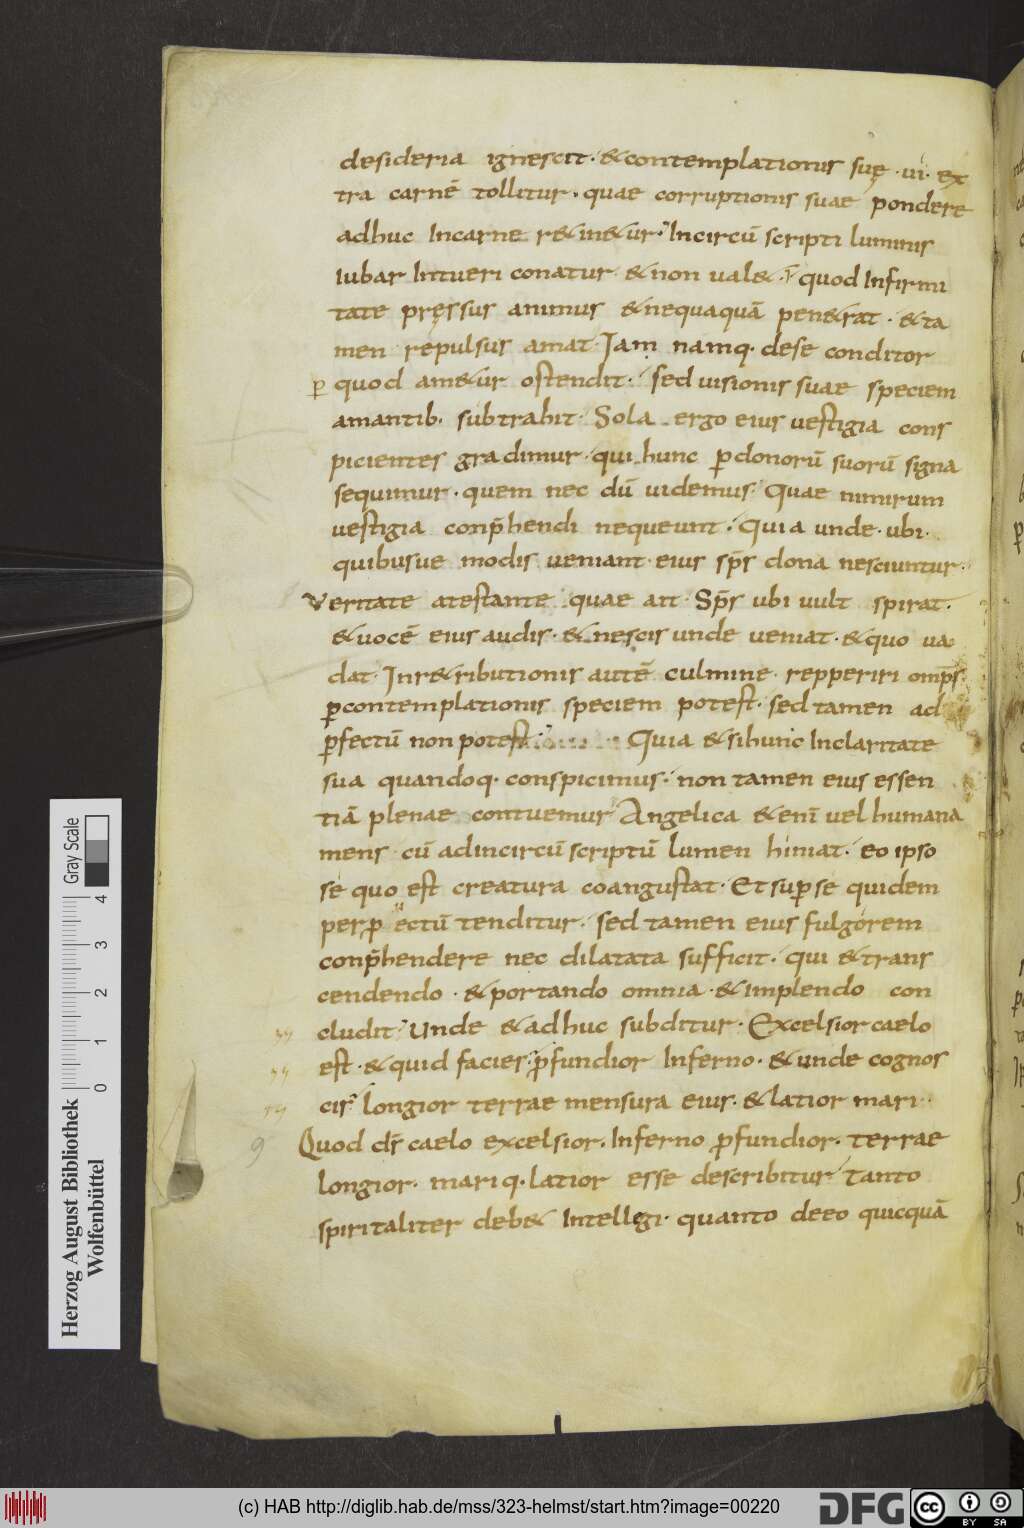 desideria ignescit· & contemplationis suę · ui · ex
tra carnē tollitur · quae corruptionis suae pondere
adhuc Incarne r&in&ur· Incircū scripti luminis
iubar Intueri conatur & non ual& · quod Infirmi
tate pressus animus & nequaquā pen&rat · & ta
men repulsus amat· Jam namq· dese conditor
ꝑ quod am&ur ostendit· sed uisionis suae speciem
amantib· subtrahit· Sola ergo eius uestigia cons
picientes gradimur · qui hunc ꝑ donorū suorū signa
sequimur · quem nec dū uidemus· Quae nimirum
uestigia conp̄hendi nequeunt· Quia unde · ubi ·
quibusue modis ueniant eius sp̄s dona nesciuntur·
Veritate atestante quae ait Sp̄s ubi uult spirat·
& uocē eius audis · & nescis unde ueniat · & quo ua
dat· Inr&ributionis autē culmine repperiri omp̄s
ꝑ contemplationis speciem potest· sed tamen ad
ꝑfectū non potest· Quia & si hunc Inclaritate
sua quandoq· conspicimus· non tamen eius essen
tiā plenae contuemur Angelica & enī uel humana
mens cū adincircū scriptū lumen hiniat· eo ipso
se quo est creatura coangustat· Et suꝑ se quidem
per ꝓ ectū tenditur· sed tamen eius fulgorem
conp̄hendere nec dilatata sufficit· qui & trans
cendendo · & portando omnia · & implendo con
cludit· Unde & adhuc subditur· Excelsior caelo
est · & quid facies· ꝓfundior Inferno · & unde cognos
cis? longior terrae mensura eius· & latior mari·
Quod dr̄ caelo excelsior· Inferno ꝓfundior· terrae
longior· mariq· latior esse describitur tanto
spiritaliter deb& Intellegi· quanto deeo quicquā
9
Herzog August Bibliothek
Wolfenbüttel
Gray Scale
0 1 2 3 4
(c) HAB http://diglib.hab.de/mss/323-helmst/start.htm?image=00220
DFG
cc BY SA